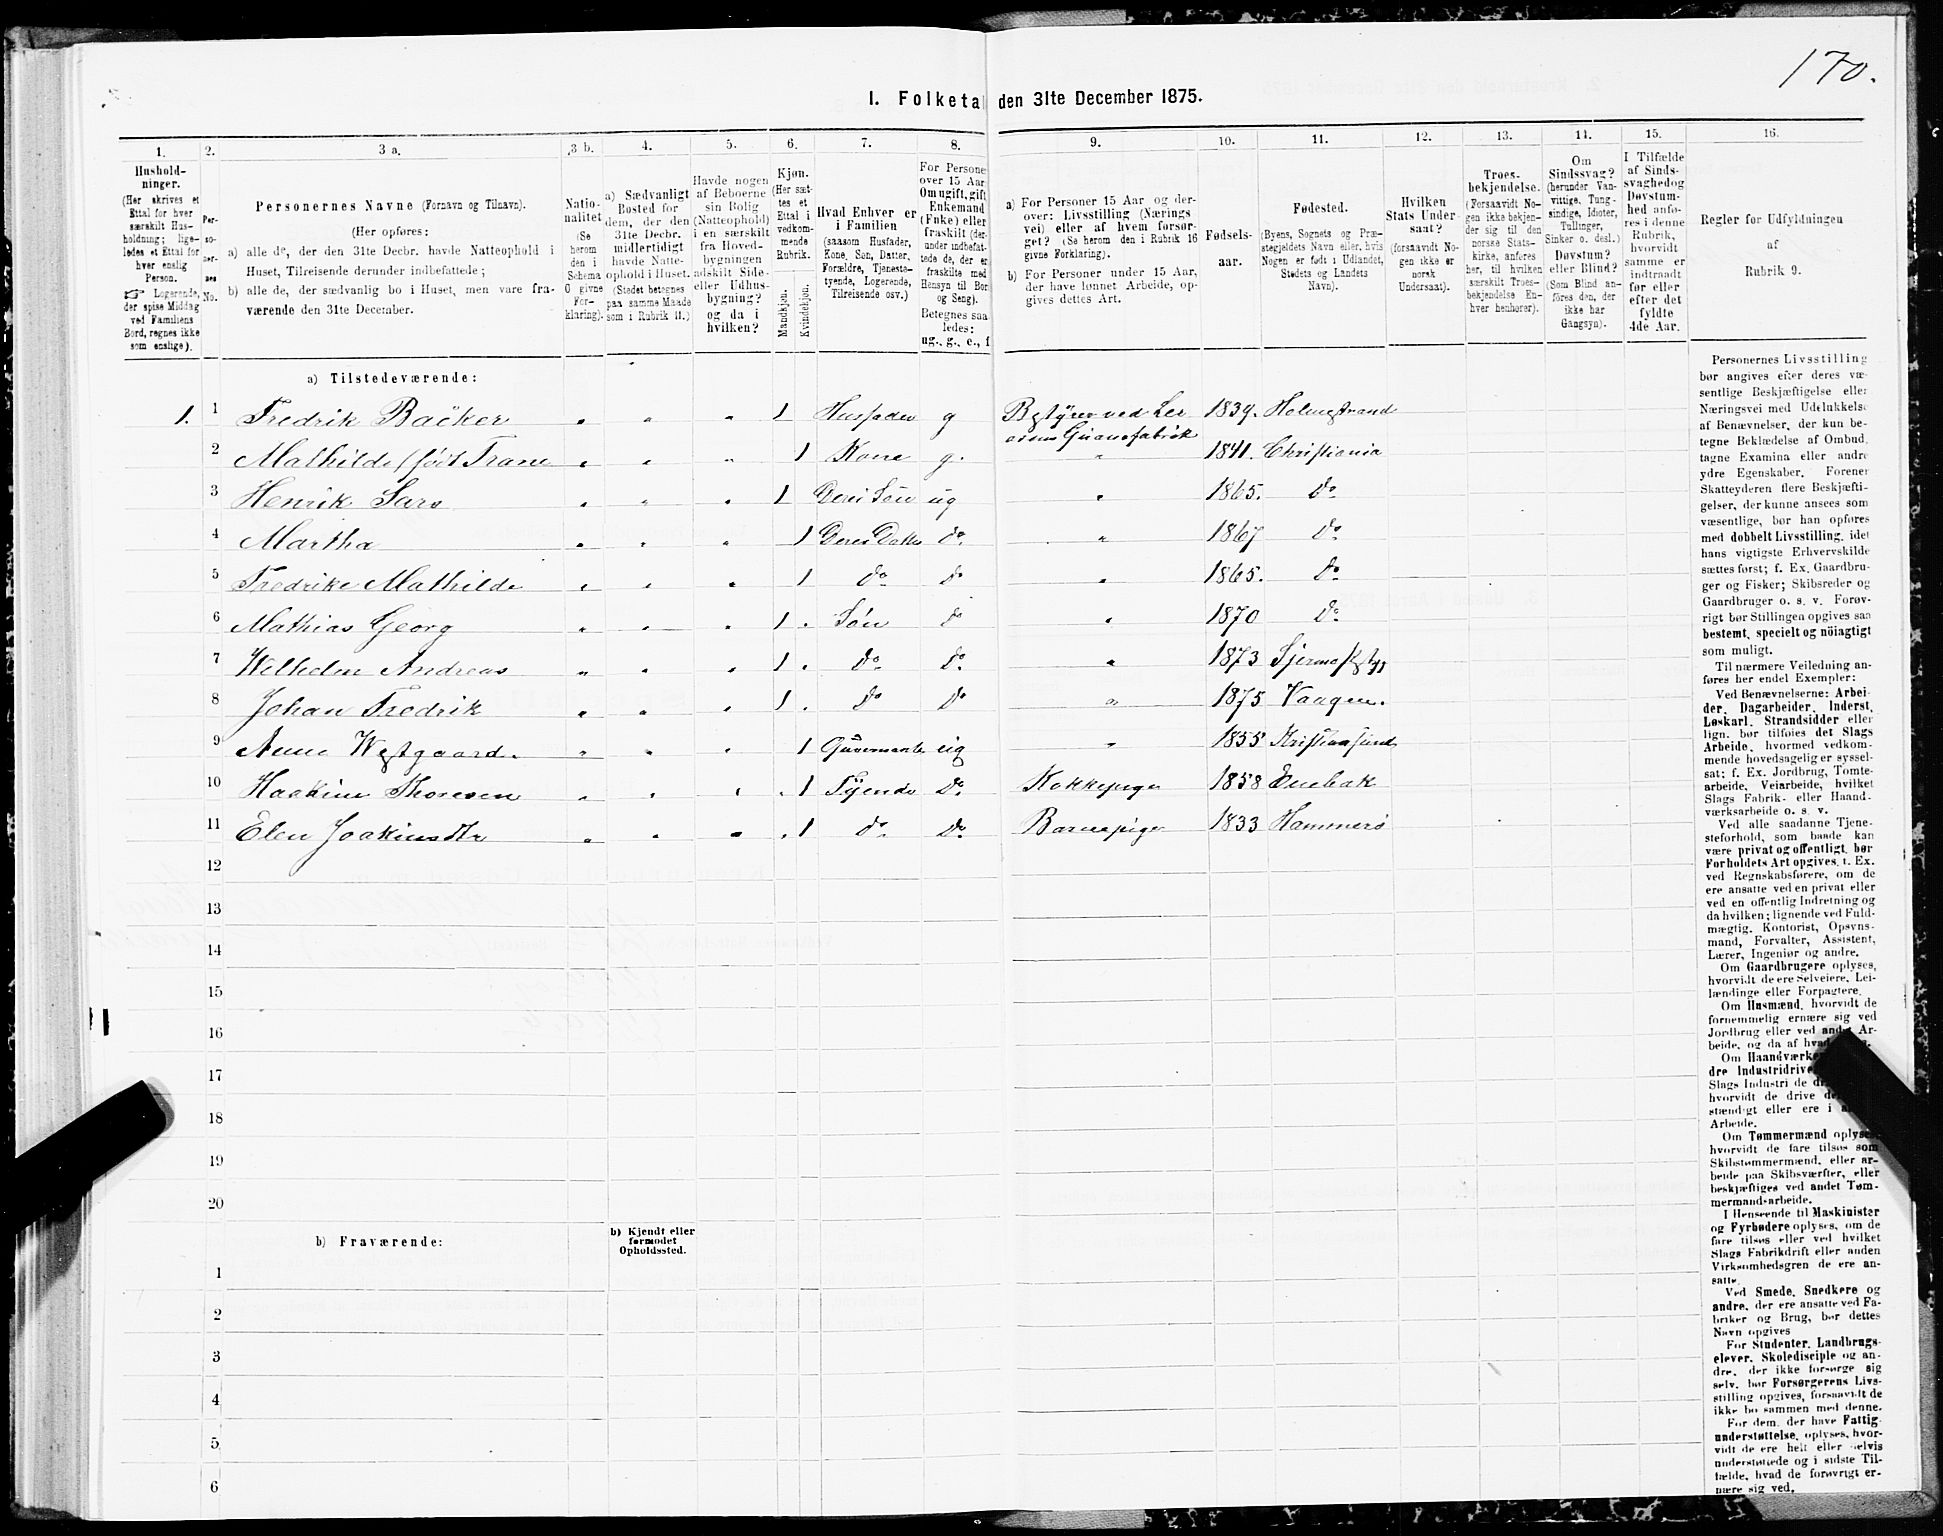 170.
I. Folketal den 31te December 1875.
1. 2. 3 a. 3 b. 4. 5. 6. 7. 8. 9. 10. 11. 12. 13. 14. 15. 16.
Hushold-
ninger.
(Her skrives et
Ettal for hver
særskilt Hus-
holdning; lige-
ledes et Ettal for
hver enslig
Person.
☞ Logerende,
der spise Middag
ved Familiens
Bord, regnes ikke
som enslige).
Per-
so-
ner-
nes
No.
Personernes Navne (Fornavn og Tilnavn).
(Her opføres:
a) alle de, der den 31te Decbr. havde Natteophold i
Huset, Tilreisende derunder indbefattede;
b) alle de, der sædvanlig bo i Huset, men vare fra-
værende den 31te December.
Natio-
nalitet
(Se
herom
den i
Schema
O givne
For-
klaring).
a) Sædvanligt
Bosted for
dem, der den
31te Decbr.
midlertidigt
havde Natte-
ophold i Huset.
(Stedet betegnes
paa samme Maade
som i Rubrik 11.)
Havde nogen
af Beboerne
sin Bolig
(Natteophold)
i en særskilt
fra Hoved-
bygningen
adskilt Side-
eller Udhus-
bygning?
og da i
hvilken?
Kjøn.
(Her sæt-
tes et
Ettal i
vedkom-
mende
Rubrik.
Mandkjøn.
Kvindekjøn.
Hvad Enhver er
i Familien
(saasom Husfader,
Kone, Søn, Datter,
Forældre, Tjeneste-
tyende, Logerende,
Tilreisende osv.)
For Persone
over 15 Aar
Om ugift, gift
Enkemand
(Enke) eller
fraskilt (der-
under indbefat-
tede de, der er
fraskilte med
Hensyn til Bor
og Seng).
Betegnes saa
ledes:
ug., g., e., f
a) For Personer 15 Aar og der-
over: Livsstilling (Nærings
vei) eller af hvem forsør-
get? (Se herom den i Rubrik 16
givne Forklaring).
b) For Personer under 15 Aar,
der have lønnet Arbeide, op-
gives dettes Art.
Fødsels-
aar.
Fødested.
(Byens, Sognets og Præ-
stegjeldets Navn eller, hvis
Nogen er født i Udlandet,
Stedets og Landets
Navn).
Hvilken
Stats Under-
saat?
(forsaavidt No-
gen ikke er
norsk
Undersaat).
Troes-
bekjendelse.
(Forsaavidt No-
gen ikke bekjen-
der sig til den
norske Stats-
kirke, anføres
her, til hvilken
særskilt Troes-
bekjendelse En-
hver henhører).
Om
Sindssvag?
(herunder Van-
vittige, Tung-
sindige, Idioter,
Tullinger,
Sinker o. desl.)
Døvstum?
eller Blind?
(Som Blind an-
føres den, der
ikke har
Gangsyn).
I Tilfælde
af Sinds-
svaghed og
Døvstum-
hed anfø-
res i denne
Rubrik,
hvorvidt
samme er
indtraadt
før eller
efter det
fyldte
4de Aar.
Regler for Udfyldningen
af
Rubrik 9.
a) Tilstedeværende:
1. 1 Fredrik Bäcker " " " 1 Husfader g Bestyrer ved Ler 1839. Holmestrand
Guanofabrik
2 Mathilde (født Trane " " " 1 Kone g. " 1841. Christiania
3 Henrik Sars " " " 1 Deres Søn ug " 1865. Do
4 Martha " " " 1 Deres Datter Do " 1867 Do
5 Fredrike Mathilde " " " 1 Do Do " 1865. Do
6 Mathias Georg " " " 1 Søn Do " 1870 Do
7 Wilhelm Andreas " " " 1 Do Do " 1873
8 Johan Fredrik " " " 1 Do Do " 1875 Vaagen.
9 Anne Westgaard. " " " 1 Guvernante ug " 1855 Kristiansund
10 Haakine Thoresen " " " 1 Tjende Do Kokkepige 1858 Enebak
11 Elen Joakimsdtr " " " 1 Do Do Barnepige 1833 Hammerø
12
13
14
15
16
17
18
19
20
b) Fraværende:
b) Kjendt eller
formodet
Opholdssted.
1
2
3
4
5
6
Personernes Livsstilling
bør angives efter deres væ-
sentlige Beskjæftigelse eller
Næringsvei med Udelukkelse
af Benævnelser, der kun be-
tegne Beklædelse af Ombud,
tagne Examina eller andre
ydre Egenskaber. Forener
Skatteyderen flere Beskjæfti-
gelser, der kunne ansees som
væsentlige, bør han opføres
med dobbelt Livsstilling, idet
hans vigtigste Erhvervskilde
sættes først; f. Ex. Gaardbru-
ger og Fisker; Skibsreder og
Gaardbruger o. s. v. Forøv-
rigt bør Stillingen opgives saa
bestemt, specielt og nöiagtigt
som muligt.
Til nærmere Veiledning an-
føres her endel Exempler:
Ved Benævnelserne: Arbei-
der, Dagarbeider, Inderst,
Løskarl, Strandsidder eller
lign. bør tilføies det Slags
Arbeide, hvormed vedkom-
mende hovedsagelig er syssel-
sat; f. Ex. Jordbrug, Tomte-
arbeide, Veiarbeide, hvilket
Slags Fabrik- eller Haand-
værksarbeide o. s. v.
Ved alle saadanne Tjene-
steforhold, som baade kan
være private og offentligt, bør
Forholdets Art opgives, t. Ex.
ved Regnskabsførere, om de
ere ansatte ved en privat eller
ved en offentlig Indretning og
da hvilken; lignende ved Fuld-
mægtig, Kontorist, Opsyns-
mand, Forvalter, Assistent,
Lærer, Ingeniør og andre.
Om Gaardbrugere oplyses,
hvorvidt de ere Selveiere, Lei-
lændinge eller Forpagtere.
Om Husmænd, hvorvidt de
fornemmelig ernære sig ved
Jordbrug eller ved andet Ar-
beide, og da af hvad
Om Haandværke
dre Industridrive
Slags Industri de
hvorvidt de drive
stændigt eller ere i
Arbeide.
Om Tømmermænd oplyses,
hvorvidt de fare tilsøs som
Skibstømmermænd, eller ar-
beide paa Skibsværfter, eller
beskjæftiges ved andet Tøm-
mermandsarbeide.
I Henseende til Maskinister
og Fyrbødere oplyses, om de
fare tilsøs eller ved hvilket
Slags Fabrikdrift eller anden
Virksomhedsgren de ere an-
satte.
Ved Smede, Snedkere og
andre, der ere ansatte ved Fa-
briker og Brug, bør dettes
Navn opgives
For Studenter, Landbrugs-
elever, Skoledisciple og an-
dre, der ikke forsørge sig
selv, bør Forsørgerens Livs-
stilling opgives, forsaavidt de
ikke bo sammen med denne.
For dem, der have Fattig-
understøttelse, oplyses, hvor-
vidt de ere helt eller delvis
understøttede og i sidste Til-
fælde, hvad de forøvrigt er-
nære sig ved.